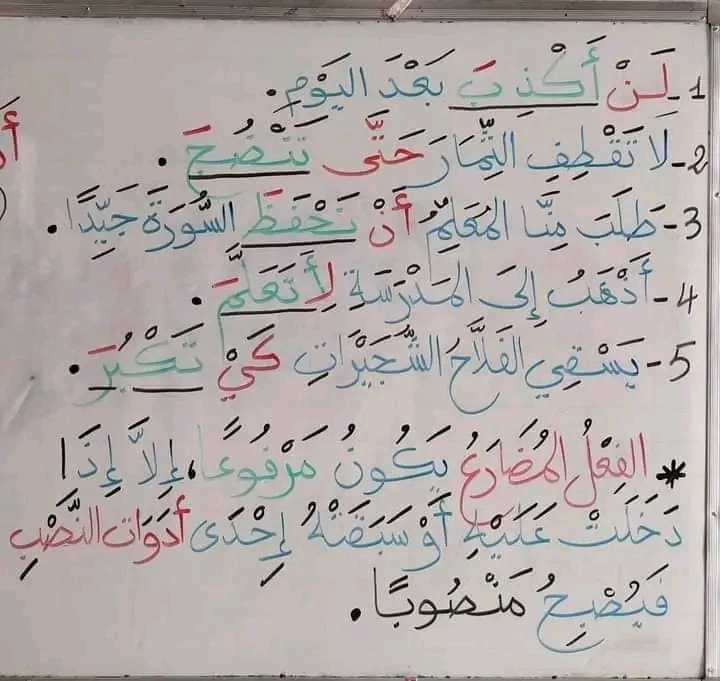 1- لَنْ أَكْذِبَ بَعْدَ اليَوْمِ.
2- لَا تَقْطِفِ الثِّمَارَ حَتَّى تَنْضُجَ.
3- طَلَبَ مِنَّا المُعَلِّمُ أَنْ نَحْفَظَ السُّورَةَ جَيِّدًا.
4- أَذْهَبُ إِلَى المَدْرَسَةِ لِأَتَعَلَّمَ.
5- يَسْقِي الفَلَّاحُ الشُّجَيْرَاتِ كَيْ تَكْبُرَ.
* الفِعْلُ المُضَارِعُ يَكُونُ مَرْفُوعًا، إِلَّا إِذَا
دَخَلَتْ عَلَيْهِ أَوْ سَبَقَتْهُ إِحْدَى أَدَوَاتِ النَّصْبِ
فَيُصْبِحُ مَنْصُوبًا.